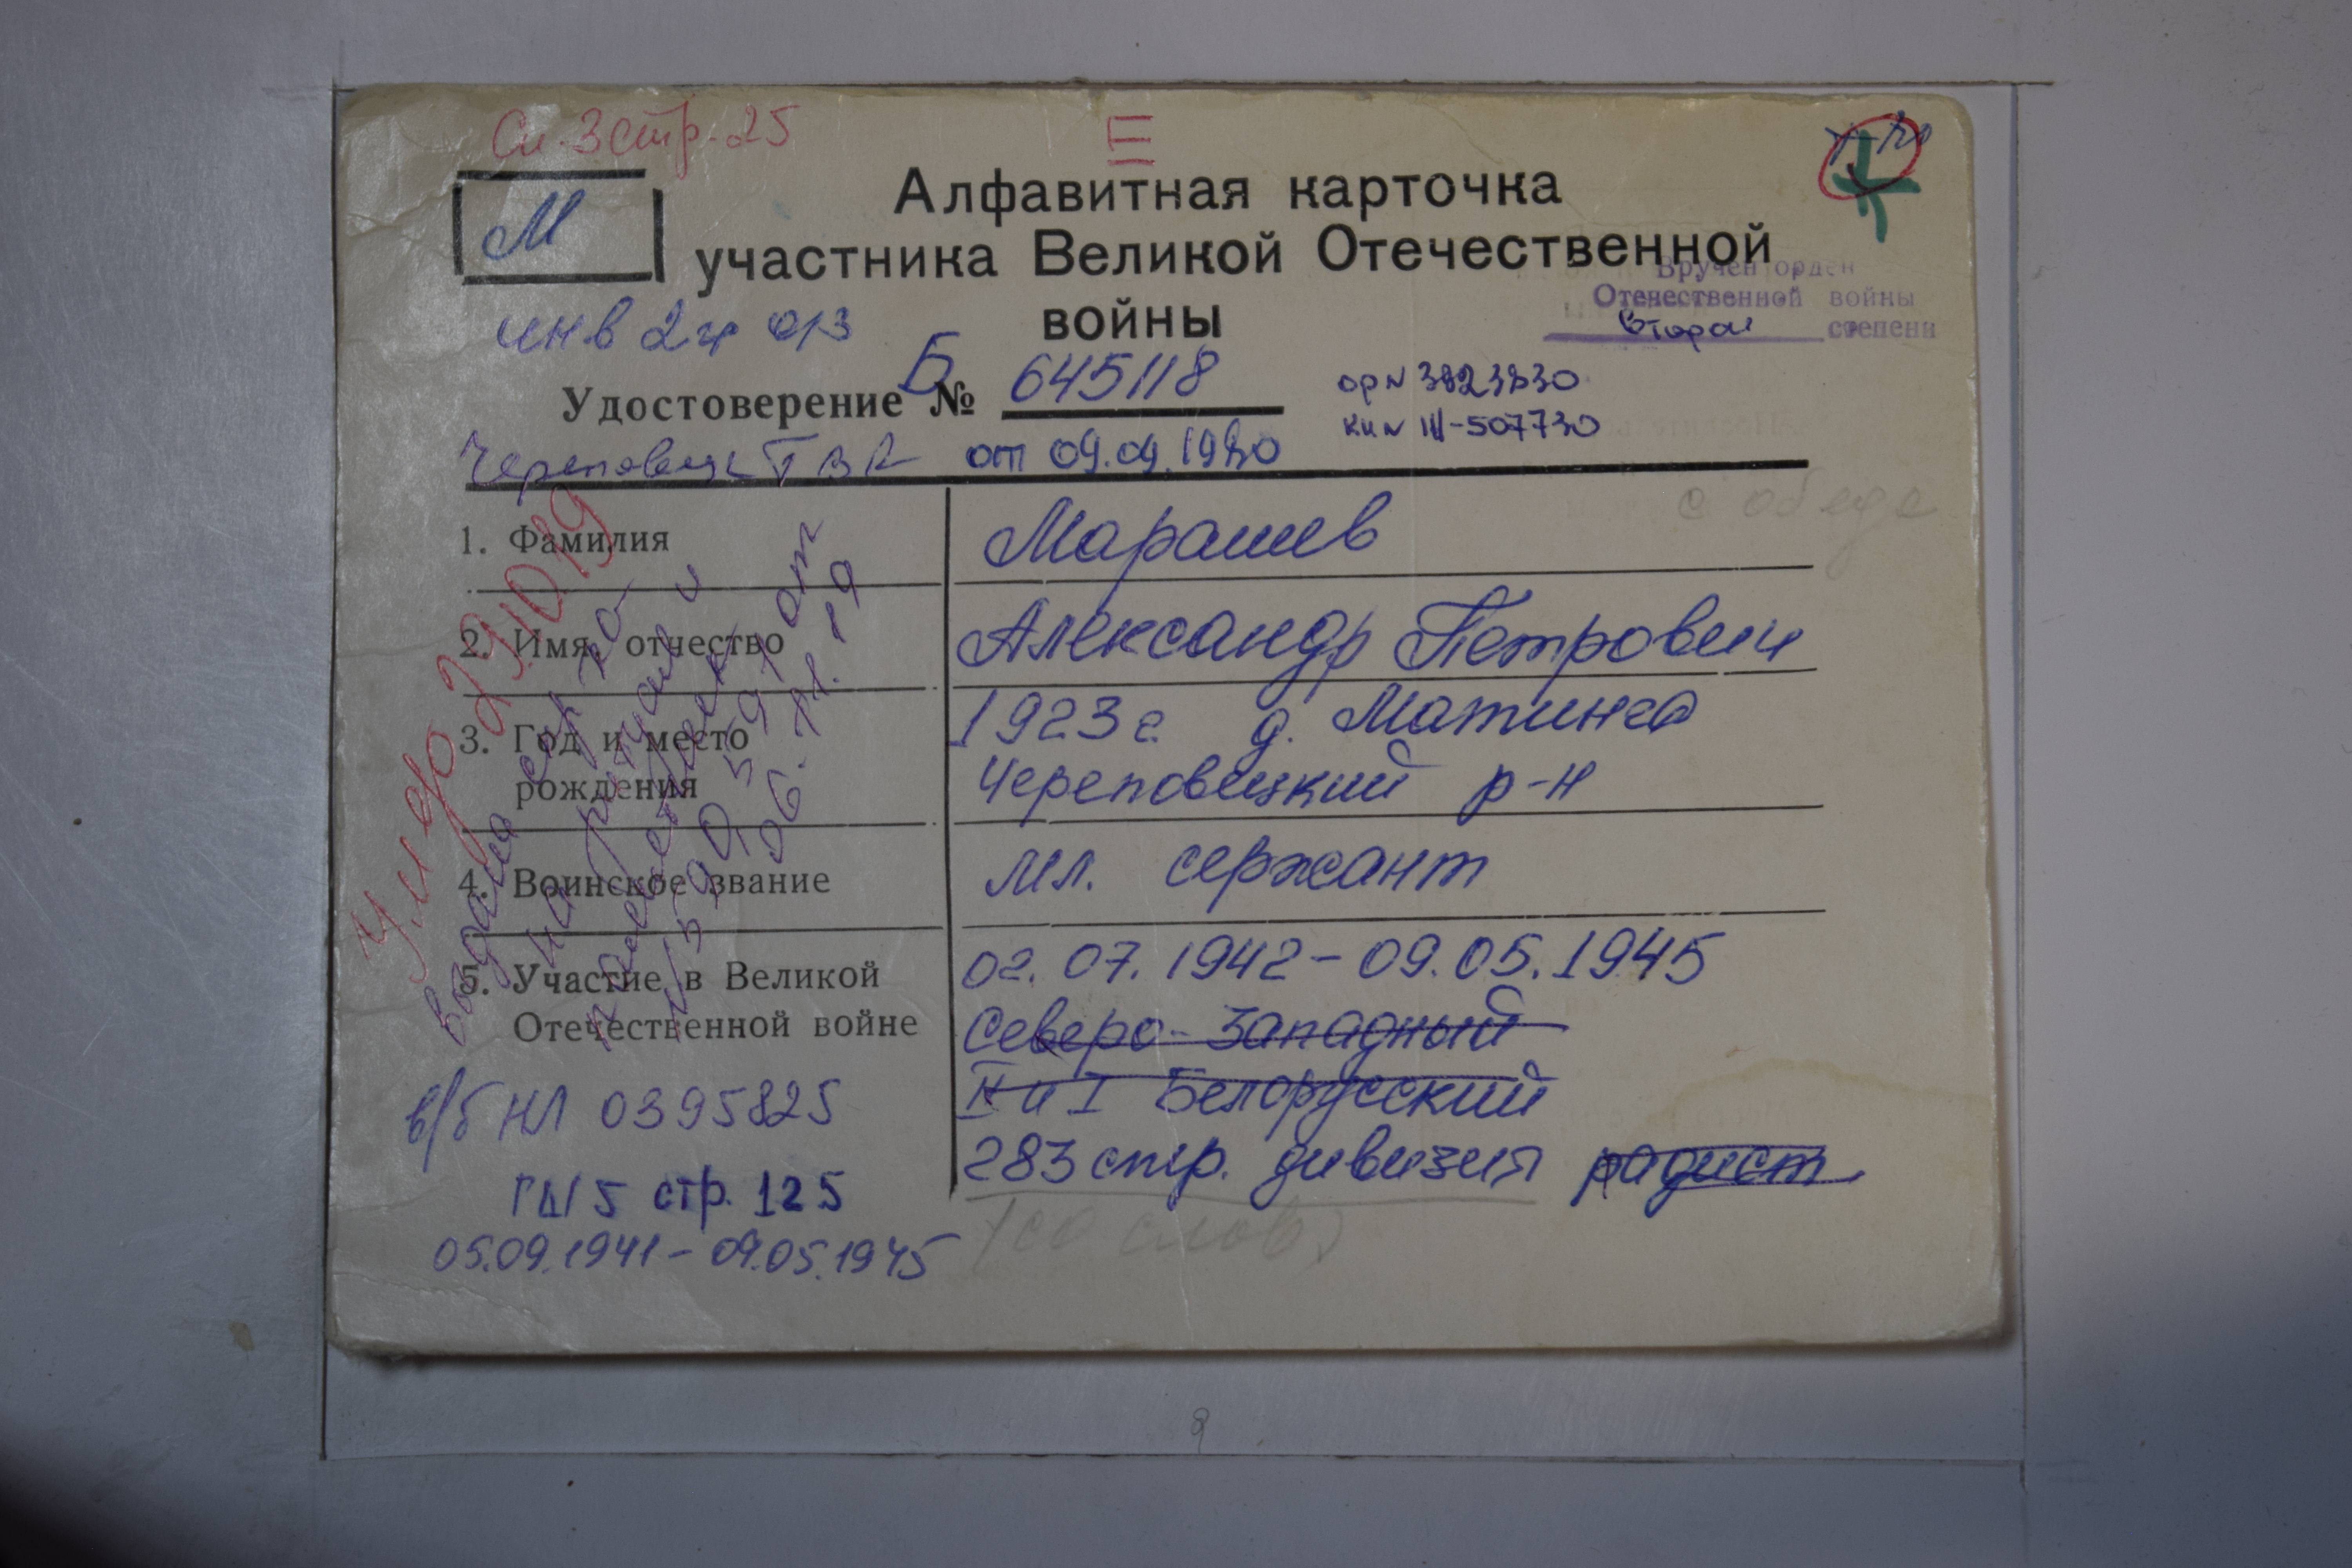 Сп. 3 стр. 25
III
М
Алфавитная карточка
участника Великой Отечественной
войны
Вручен орден
Отечественной войны
второй степени
инв 2 гр о/з
Удостоверение Б № 645118
ор № 3823830
кн № III-507730
Череповец ГВК от 09.09.1980
с обеде
1. Фамилия
Марашев
2. Имя, отчество
Александр Петрович
3. Год и место
рождения
1923 г. д. Матинга
Череповецкий р-н
4. Воинское звание
мл. сержант
5. Участие в Великой
Отечественной войне
02.07.1942 - 09.05.1945
Северо-Западный
II и I Белорусский
283 стр. дивизия радист
(со слов)
Умер 29.10.19
выдана спр по-
на ритуал и
от
06.11.19
в/б НЛ 0395825
ГД 5 стр. 125
05.09.1941 - 09.05.1945
9